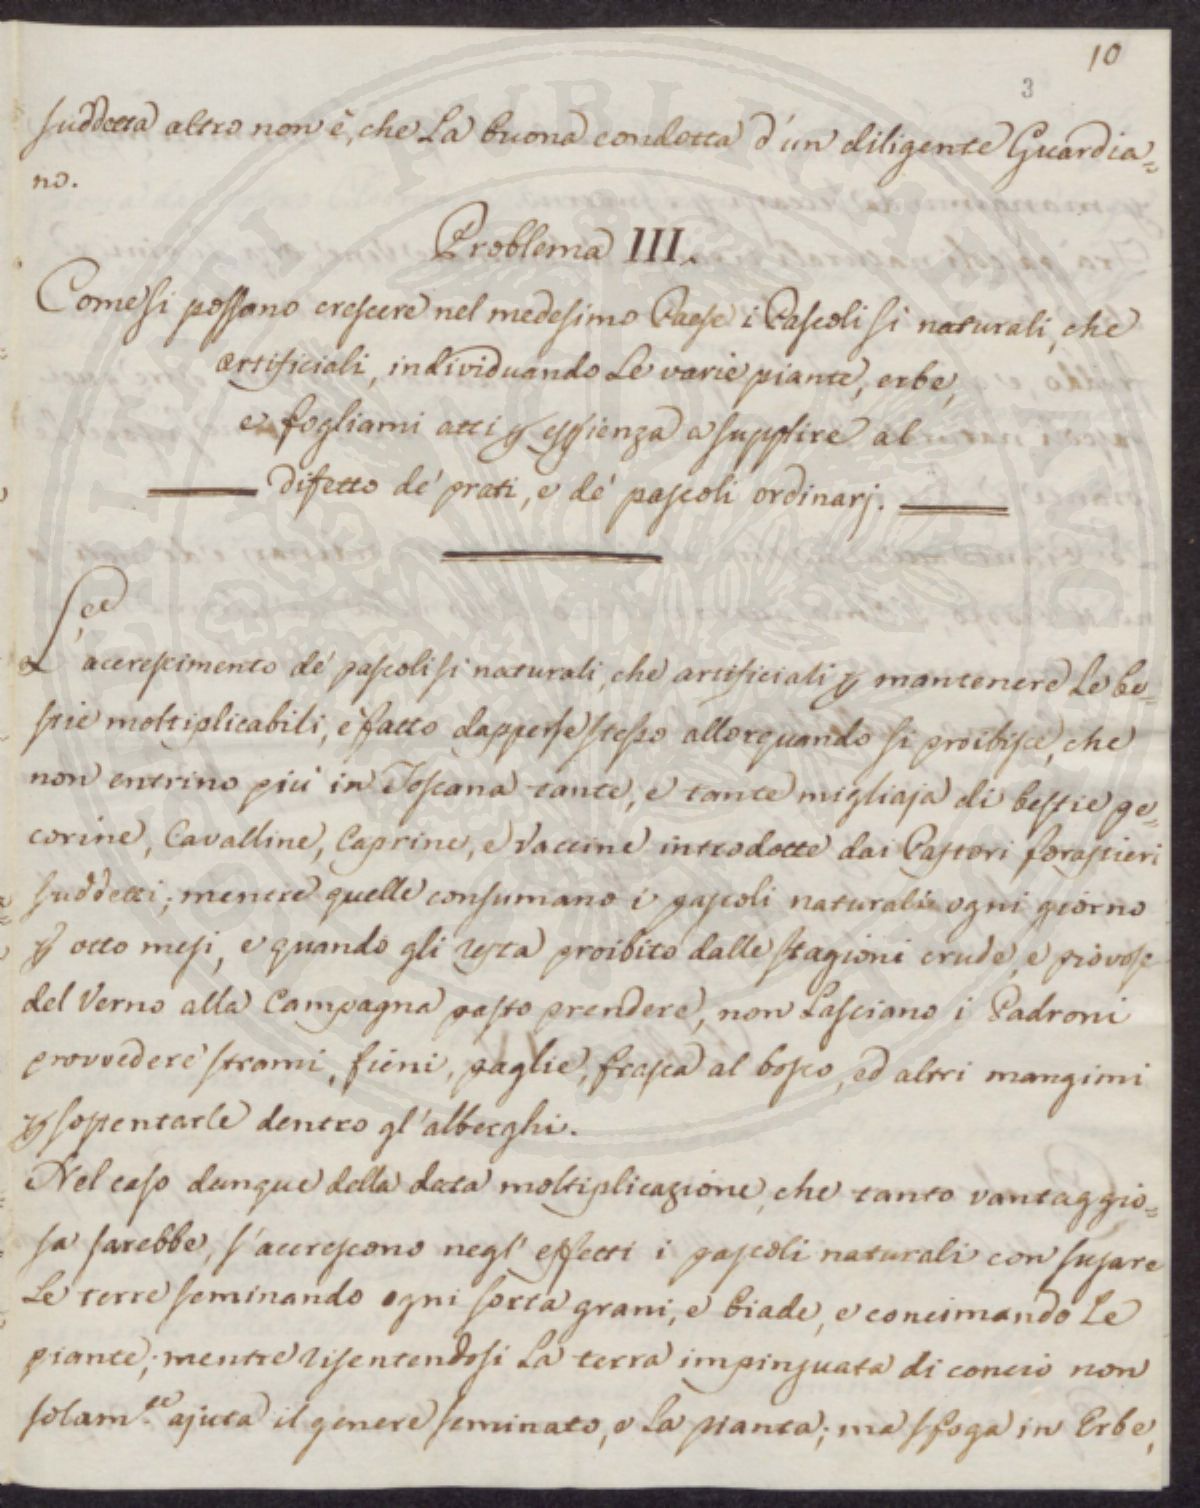 10
3
suddetta altro non è, che La buona condotta d'un diligente Guardia=
no.
Problema III.
Come si possano crescere nel medesimo Paese i Pascoli si naturali, che
artificiali, individuando Le varie piante, erbe,
e fogliami atti p esperienza a supplire al
difetto de' prati, e de' pascoli ordinarj.
L' accrescimento de' pascoli si naturali, che artificiali p mantenere Le be=
stie moltiplicabili, è fatto dapperse stesso allorquando si proibisce, che
non entrino più in Toscana tante, e tante migliaja di bestie pe=
corine, Cavalline, Caprine, e Vaccine introdotte dai Pastori forastieri
suddetti; mentre quelle consumano i pascoli naturali ogni giorno
p otto mesi, e quando gli resta proibito dalle stagioni crude, e piovose
del Verno alla Campagna pasto prendere, non Lasciano i Padroni
provvedere strami, fieni, paglie, frasca al bosco, ed altri mangimi
p sostentarle dentro gl'alberghi.
Nel caso dunque della data moltiplicazione, che tanto vantaggio=
sa sarebbe, s'accrescono negl' effetti i pascoli naturali con sugare
Le terre seminando ogni sorta grani, e biade, e concimando Le
piante; mentre risentendosi La terra impinguata di concio non
solam.te ajuta il genere seminato, e La pianta; ma sfoga in Erbe,